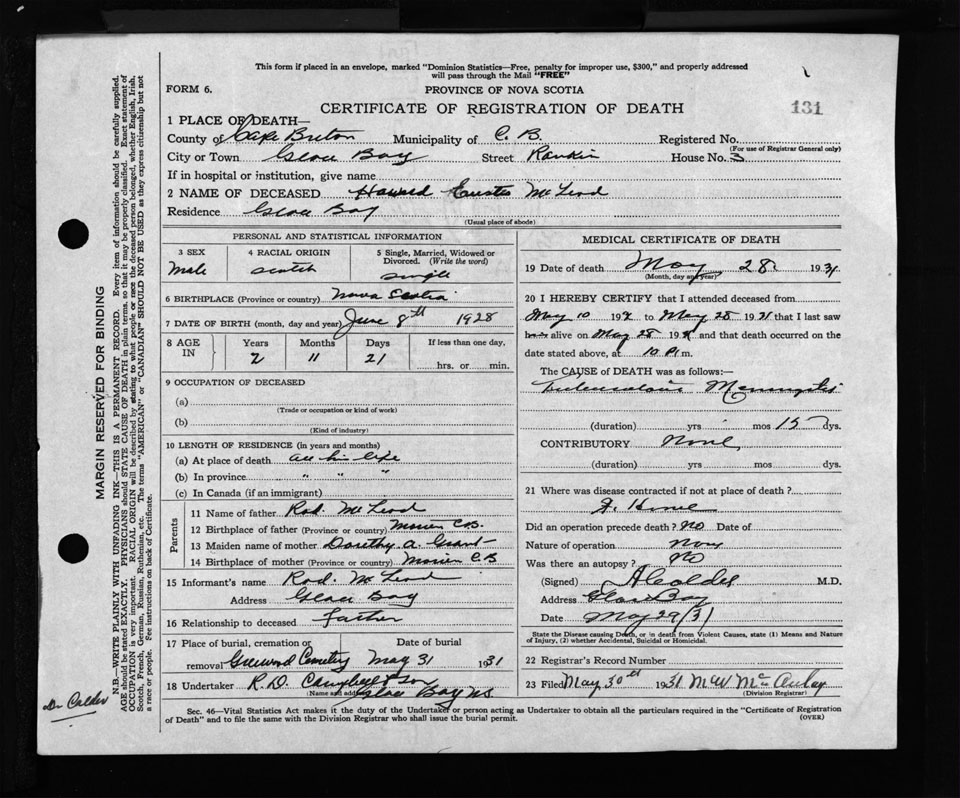 This form if placed in an envelope, marked "Dominion Statistics—Free, penalty for improper use, $300," and properly addressed
will pass through the Mail "FREE"
FORM 6.
PROVINCE OF NOVA SCOTIA
CERTIFICATE OF REGISTRATION OF DEATH
131
1 PLACE OF DEATH—
County of Cape Breton Municipality of C. B. Registered No.
(For use of Registrar General only)
City or Town Glace Bay Street Rankin House No. 3
If in hospital or institution, give name
2 NAME OF DECEASED Howard McLeod
Residence Glace Bay
(Usual place of abode)
PERSONAL AND STATISTICAL INFORMATION
3 SEX 4 RACIAL ORIGIN 5 Single, Married, Widowed or
Divorced. (Write the word)
Male Scotch Single
6 BIRTHPLACE (Province or country) Nova Scotia
7 DATE OF BIRTH (month, day and year) June 8th 1928
8 AGE IN Years Months Days If less than one day,
2 11 21 hrs. or min.
9 OCCUPATION OF DECEASED
(a)
(Trade or occupation or kind of work)
(b)
(Kind of industry)
10 LENGTH OF RESIDENCE (in years and months)
(a) At place of death all his life
(b) In province " " "
(c) In Canada (if an immigrant)
Parents
11 Name of father Rod. McLeod
12 Birthplace of father (Province or country) Morien C.B.
13 Maiden name of mother Dorothy A. Grant
14 Birthplace of mother (Province or country) Morien C.B
15 Informant's name Rod. McLeod
Address Glace Bay
16 Relationship to deceased Father
17 Place of burial, cremation or Date of burial
removal Greenwood Cemetery May 31 1931
18 Undertaker R. D. Campbell & Son
Name and address Glace Bay N.S.
MEDICAL CERTIFICATE OF DEATH
19 Date of death May 28 1931
(Month, day and year)
20 I HEREBY CERTIFY that I attended deceased from
May 10 193 to May 28 1931 that I last saw
h alive on May 28 193 and that death occurred on the
date stated above, at 10 P.m.
The CAUSE of DEATH was as follows:—
Tuberculous Meningitis
(duration) yrs mos 15 dys.
CONTRIBUTORY None
(duration) yrs mos dys.
21 Where was disease contracted if not at place of death?
Home
Did an operation precede death? No Date of
Nature of operation None
Was there an autopsy? No
(Signed) A Calder M.D.
Address Glace Bay
Date May 29/31
State the Disease causing Death, or in death from Violent Causes, state (1) Means and Nature
of Injury, (2) whether Accidental, Suicidal or Homicidal.
22 Registrar's Record Number
23 Filed May 30th 1931 McAulay
(Division Registrar)
Sec. 46—Vital Statistics Act makes it the duty of the Undertaker or person acting as Undertaker to obtain all the particulars required in the "Certificate of Registration
of Death" and to file the same with the Division Registrar who shall issue the burial permit.
(OVER)
MARGIN RESERVED FOR BINDING
N.B.—WRITE PLAINLY WITH UNFADING INK—THIS IS A PERMANENT RECORD. Every item of information should be carefully supplied.
AGE should be stated EXACTLY. PHYSICIANS should STATE CAUSE OF DEATH in plain terms, so that it may be properly classified. Exact statement of
OCCUPATION is very important. RACIAL ORIGIN will be described by stating to what people or race the deceased person belonged, whether English, Irish,
Scotch, French, German, Russian, Ruthenian, etc. The terms "AMERICAN" or "CANADIAN" SHOULD NOT BE USED as they express citizenship but not
a race or people. Fee instructions on back of Certificate.
Dr Calder